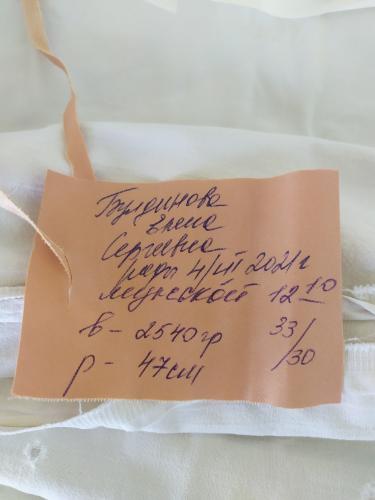 Булдинова
Елена
Сергеевна
роды 4/VII 2021г
мужской 12 10
в - 2540гр 33/30
р - 47см